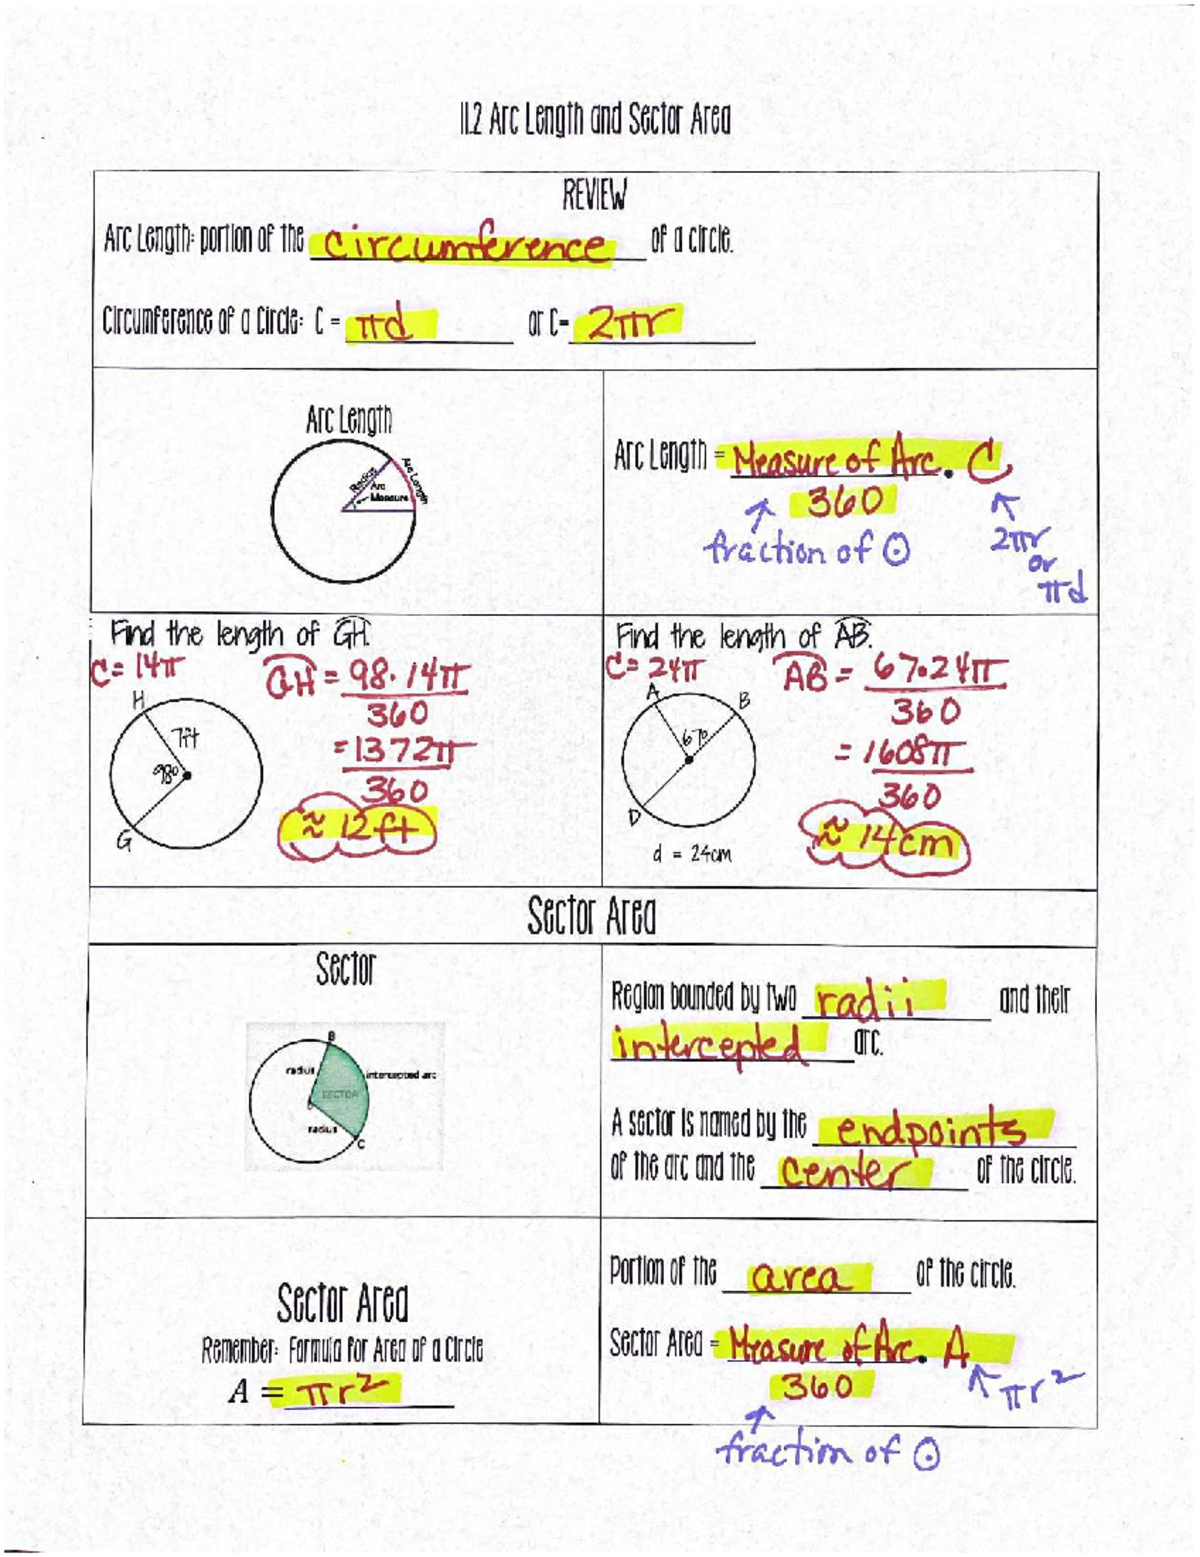 11.2 Arc Length and Sector Area
REVIEW
Arc Length: portion of the circumference of a circle.
Circumference of a Circle: C = πd or C= 2πr
Arc Length
Radius
Arc Measure
Arc Length
Arc Length = Measure of Arc . C
360
fraction of ⊙
2πr
or
πd
Find the length of GH.
C = 14π
GH = 98 · 14π
360
= 1372π
360
≈ 12ft
H
7ft
98°
G
Find the length of AB.
C = 24π
AB = 67·24π
360
= 1608π
360
≈ 14cm
A
B
67°
D
d = 24cm
Sector Area
Sector
B
radius
intercepted arc
SECTOR
radius
C
Region bounded by two radii and their
intercepted arc.
A sector is named by the endpoints
of the arc and the center of the circle.
Sector Area
Remember: Formula for Area of a Circle
A = πr²
Portion of the area of the circle.
Sector Area = Measure of Arc . A
360
πr²
fraction of ⊙